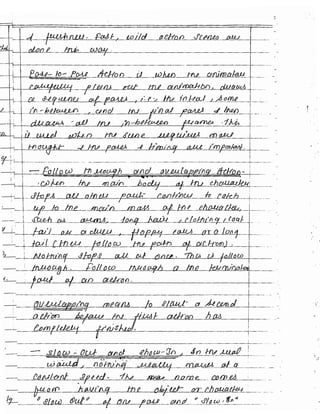 & freshness. Fast, wild action scenes are
done this way.
Pose-to-Pose Action is when the animator
carefully plans out the animation, draws
a sequence of poses, i.e., the initial, some
in-between, and the final poses & then
draws all the in-between frames. This
is used when the scene requires more
thought & the poses & timing are important.
— Follow through and overlapping Action -
when the main body of the character
stops all other parts continue to catch
up to the main mass of the character,
such as arms, long hair, clothing, coat
tail or a dress, floppy ears or a long
tail (these follow the path of action).
Nothing stops all at once. This is follow
through. Follow through is the termination
part of an action.
Overlapping means to start a second
action before the first action has
completely finished.
— Slow-Out and Slow-In, In the real
world, nothing really moves at a
constant speed. The name comes
from having the object or character
"Slow Out" of one pose and "Slow-In"